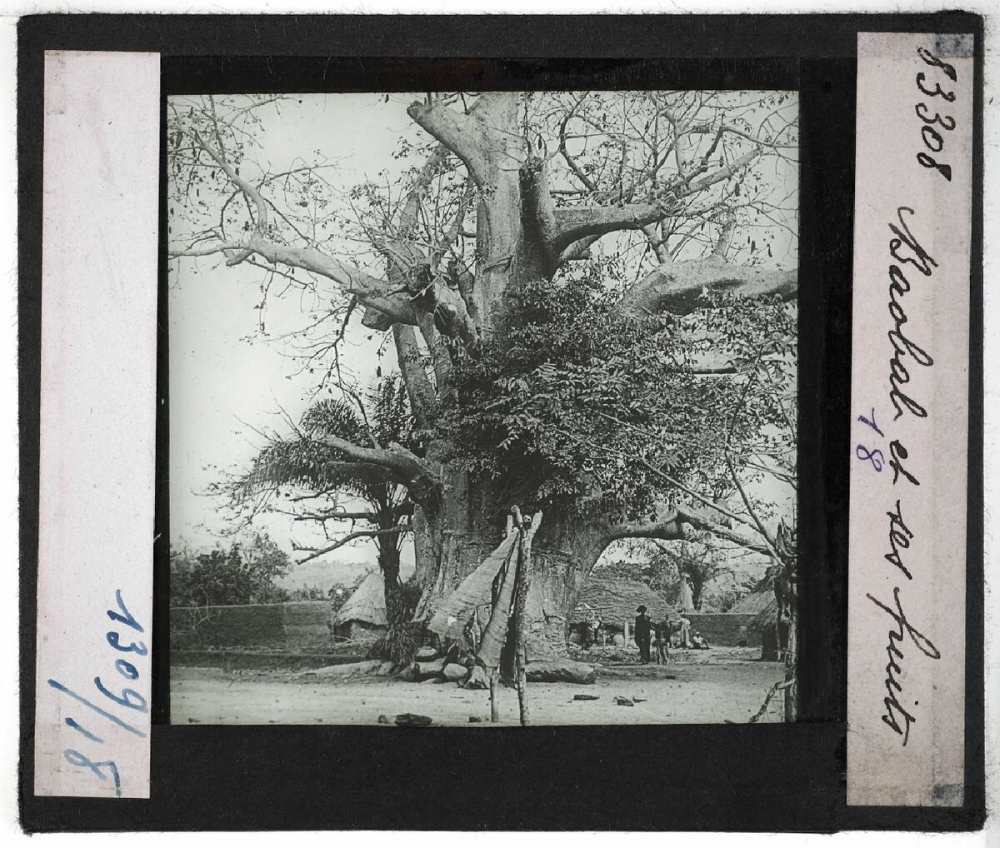 83308 Baobab et ses fruits
18
1309/18